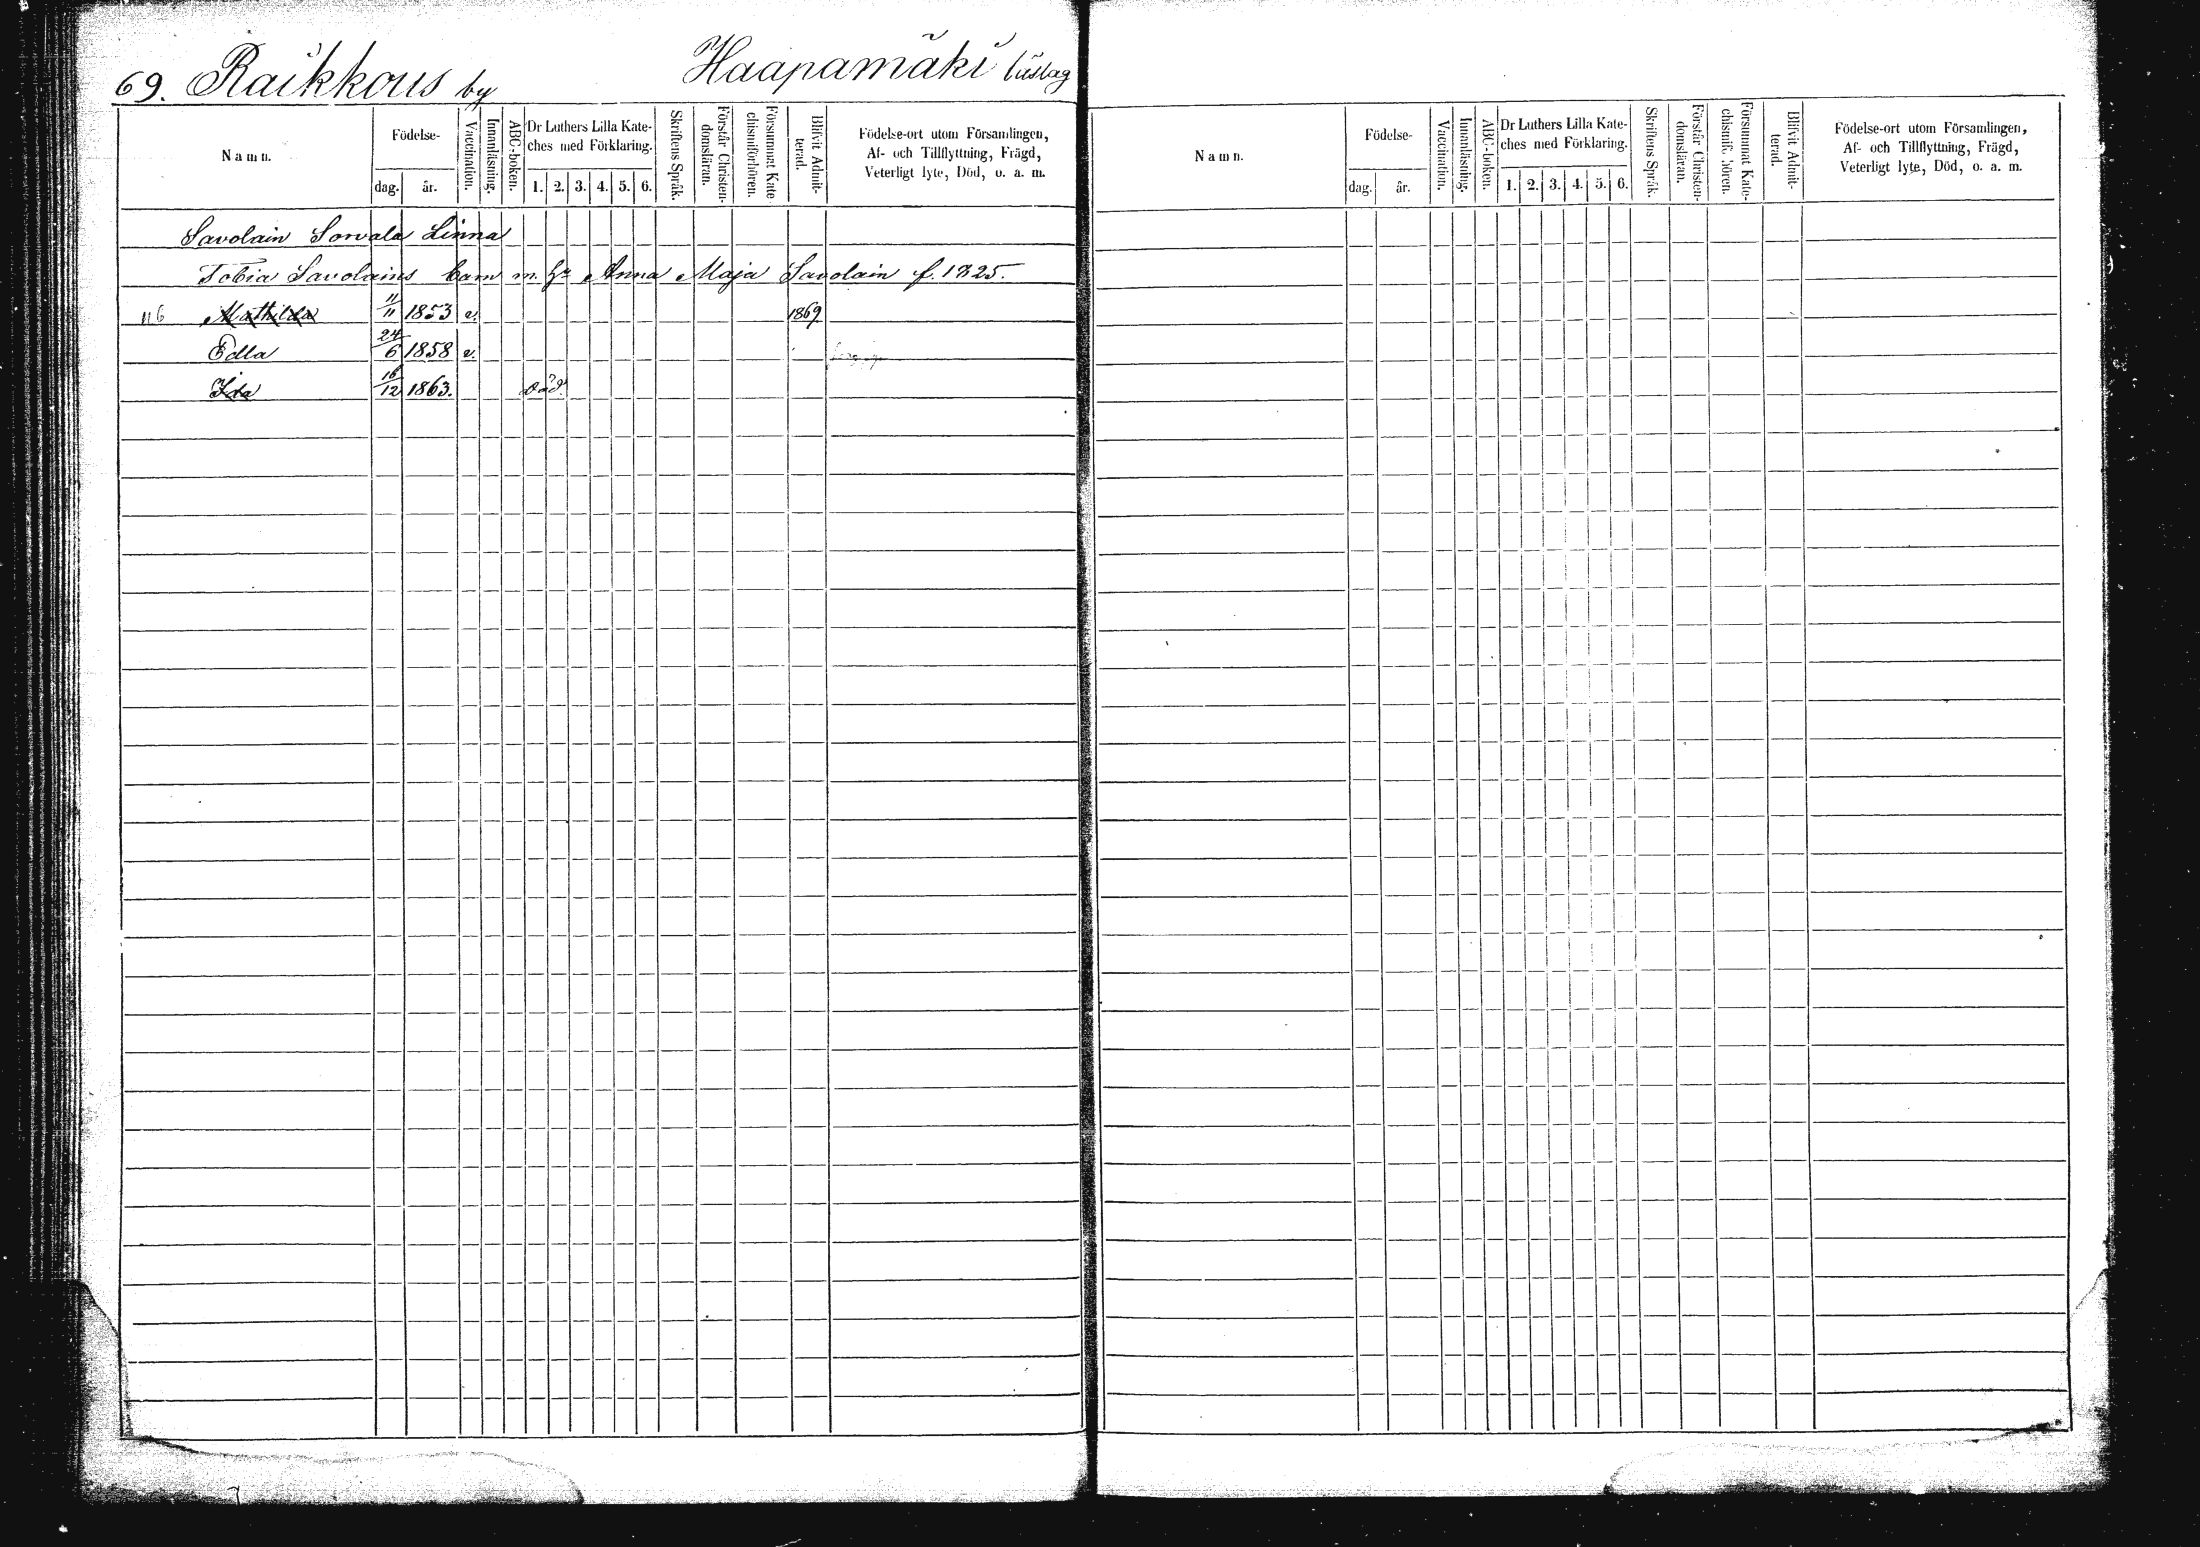 69. Raikkous by Haapamäki
Namn.
Födelse-
dag. år.
Vaccination.
Innanläsning.
ABC-boken.
Dr Luthers Lilla Kate-
ches med Förklaring.
1. 2. 3. 4. 5. 6.
Skriftens Språk.
Förstår Christen-
domsläran.
Försummat Kate-
chismiförhören.
Blifvit Admit-
terad.
Födelse-ort utom Församlingen,
Af- och Tillflyttning, Frägd,
Veterligt lyte, Död, o. a. m.
Savolain Sorvala Linna
Tobia Savolains barn m. Anna Maja Savolain f. 1825.
116 Mathilda 11/11 1853 v. 1869
Edla 24/6 1858 v.
Ida 16/12 1863. död.
Namn.
Födelse-
dag. år.
Vaccination.
Innanläsning.
ABC-boken.
Dr Luthers Lilla Kate-
ches med Förklaring.
1. 2. 3. 4. 5. 6.
Skriftens Språk.
Förstår Christen-
domsläran.
Försummat Kate-
chismiförhören.
Blifvit Admit-
terad.
Födelse-ort utom Församlingen,
Af- och Tillflyttning, Frägd,
Veterligt lyte, Död, o. a. m.